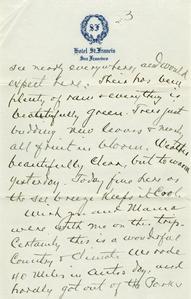 23
SF
Hotel St. Francis
San Francisco
see nearly everywhere, and would
expect here. Theis has been
plenty of rain & everything is
beautifully green. Trees just
budding, new leaves & nearly
all fruit in bloom. Weather
beautifully clear, but to warm
yesterday. Today fine here as
the sea breeze keeps it cool.
Wish you and Mama
were with me on this trip.
Certainly this is a wonderful
Country & climate. We rode
40 miles in auto to day, and
hardly got out of the Parks